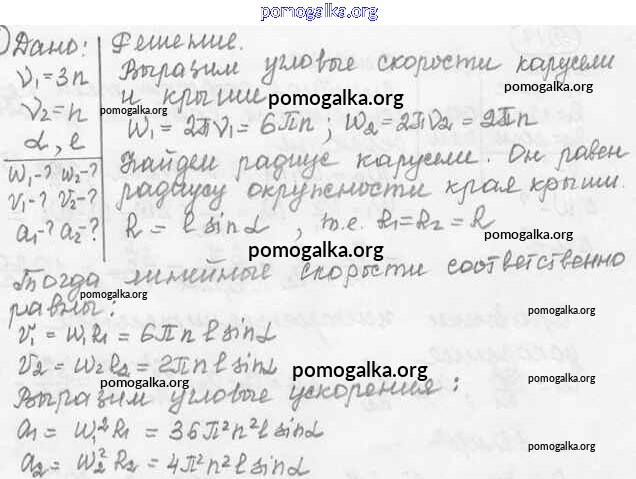 pomogalka.org
) Дано: Решение.
ν₁=3n Выразим угловые скорости карусели
ν₂=n и крыши pomogalka.org
pomogalka.org
α, l W₁ = 2πν₁ = 6πn; W₂ = 2πν₂ = 2πn
W₁-? W₂-? Найдем радиус карусели. Он равен
v₁-? v₂-? радиусу окружности края крыши.
a₁-? a₂-? R = l sinα, т.е. R₁=R₂=R
pomogalka.org
pomogalka.org
Тогда линейные скорости соответственно
pomogalka.org
равны: pomogalka.org
v₁ = W₁R₁ = 6πn l sinα
v₂ = W₂R₂ = 2πn l sinα pomogalka.org
pomogalka.org pomogalka.org
Выразим угловые ускорения:
a₁ = W₁²R₁ = 36π²n²l sinα
pomogalka.org
a₂ = W₂²R₂ = 4π²n²l sinα